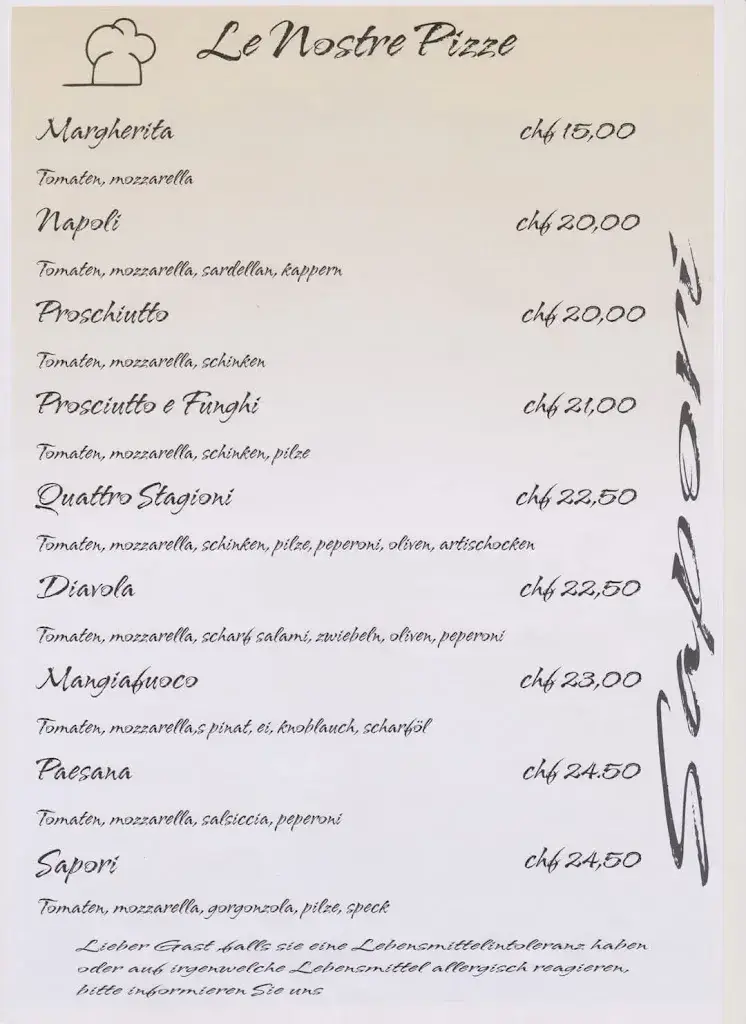 Le Nostre Pizze
Margherita chf 15,00
Tomaten, mozzarella
Napoli chf 20,00
Tomaten, mozzarella, sardellan, kappern
Proschiutto chf 20,00
Tomaten, mozzarella, schinken
Prosciutto e Funghi chf 21,00
Tomaten, mozzarella, schinken, pilze
Quattro Stagioni chf 22,50
Tomaten, mozzarella, schinken, pilze, peperoni, oliven, artischocken
Diavola chf 22,50
Tomaten, mozzarella, scharf salami, zwiebeln, oliven, peperoni
Mangiafuoco chf 23,00
Tomaten, mozzarella,s pinat, ei, knoblauch, scharföl
Paesana chf 24.50
Tomaten, mozzarella, salsiccia, peperoni
Sapori chf 24,50
Tomaten, mozzarella, gorgonzola, pilze, speck
Lieber Gast falls sie eine Lebensmittelintoleranz haben
oder auf irgenwelche Lebensmittel allergisch reagieren,
bitte informieren Sie uns
Sapori